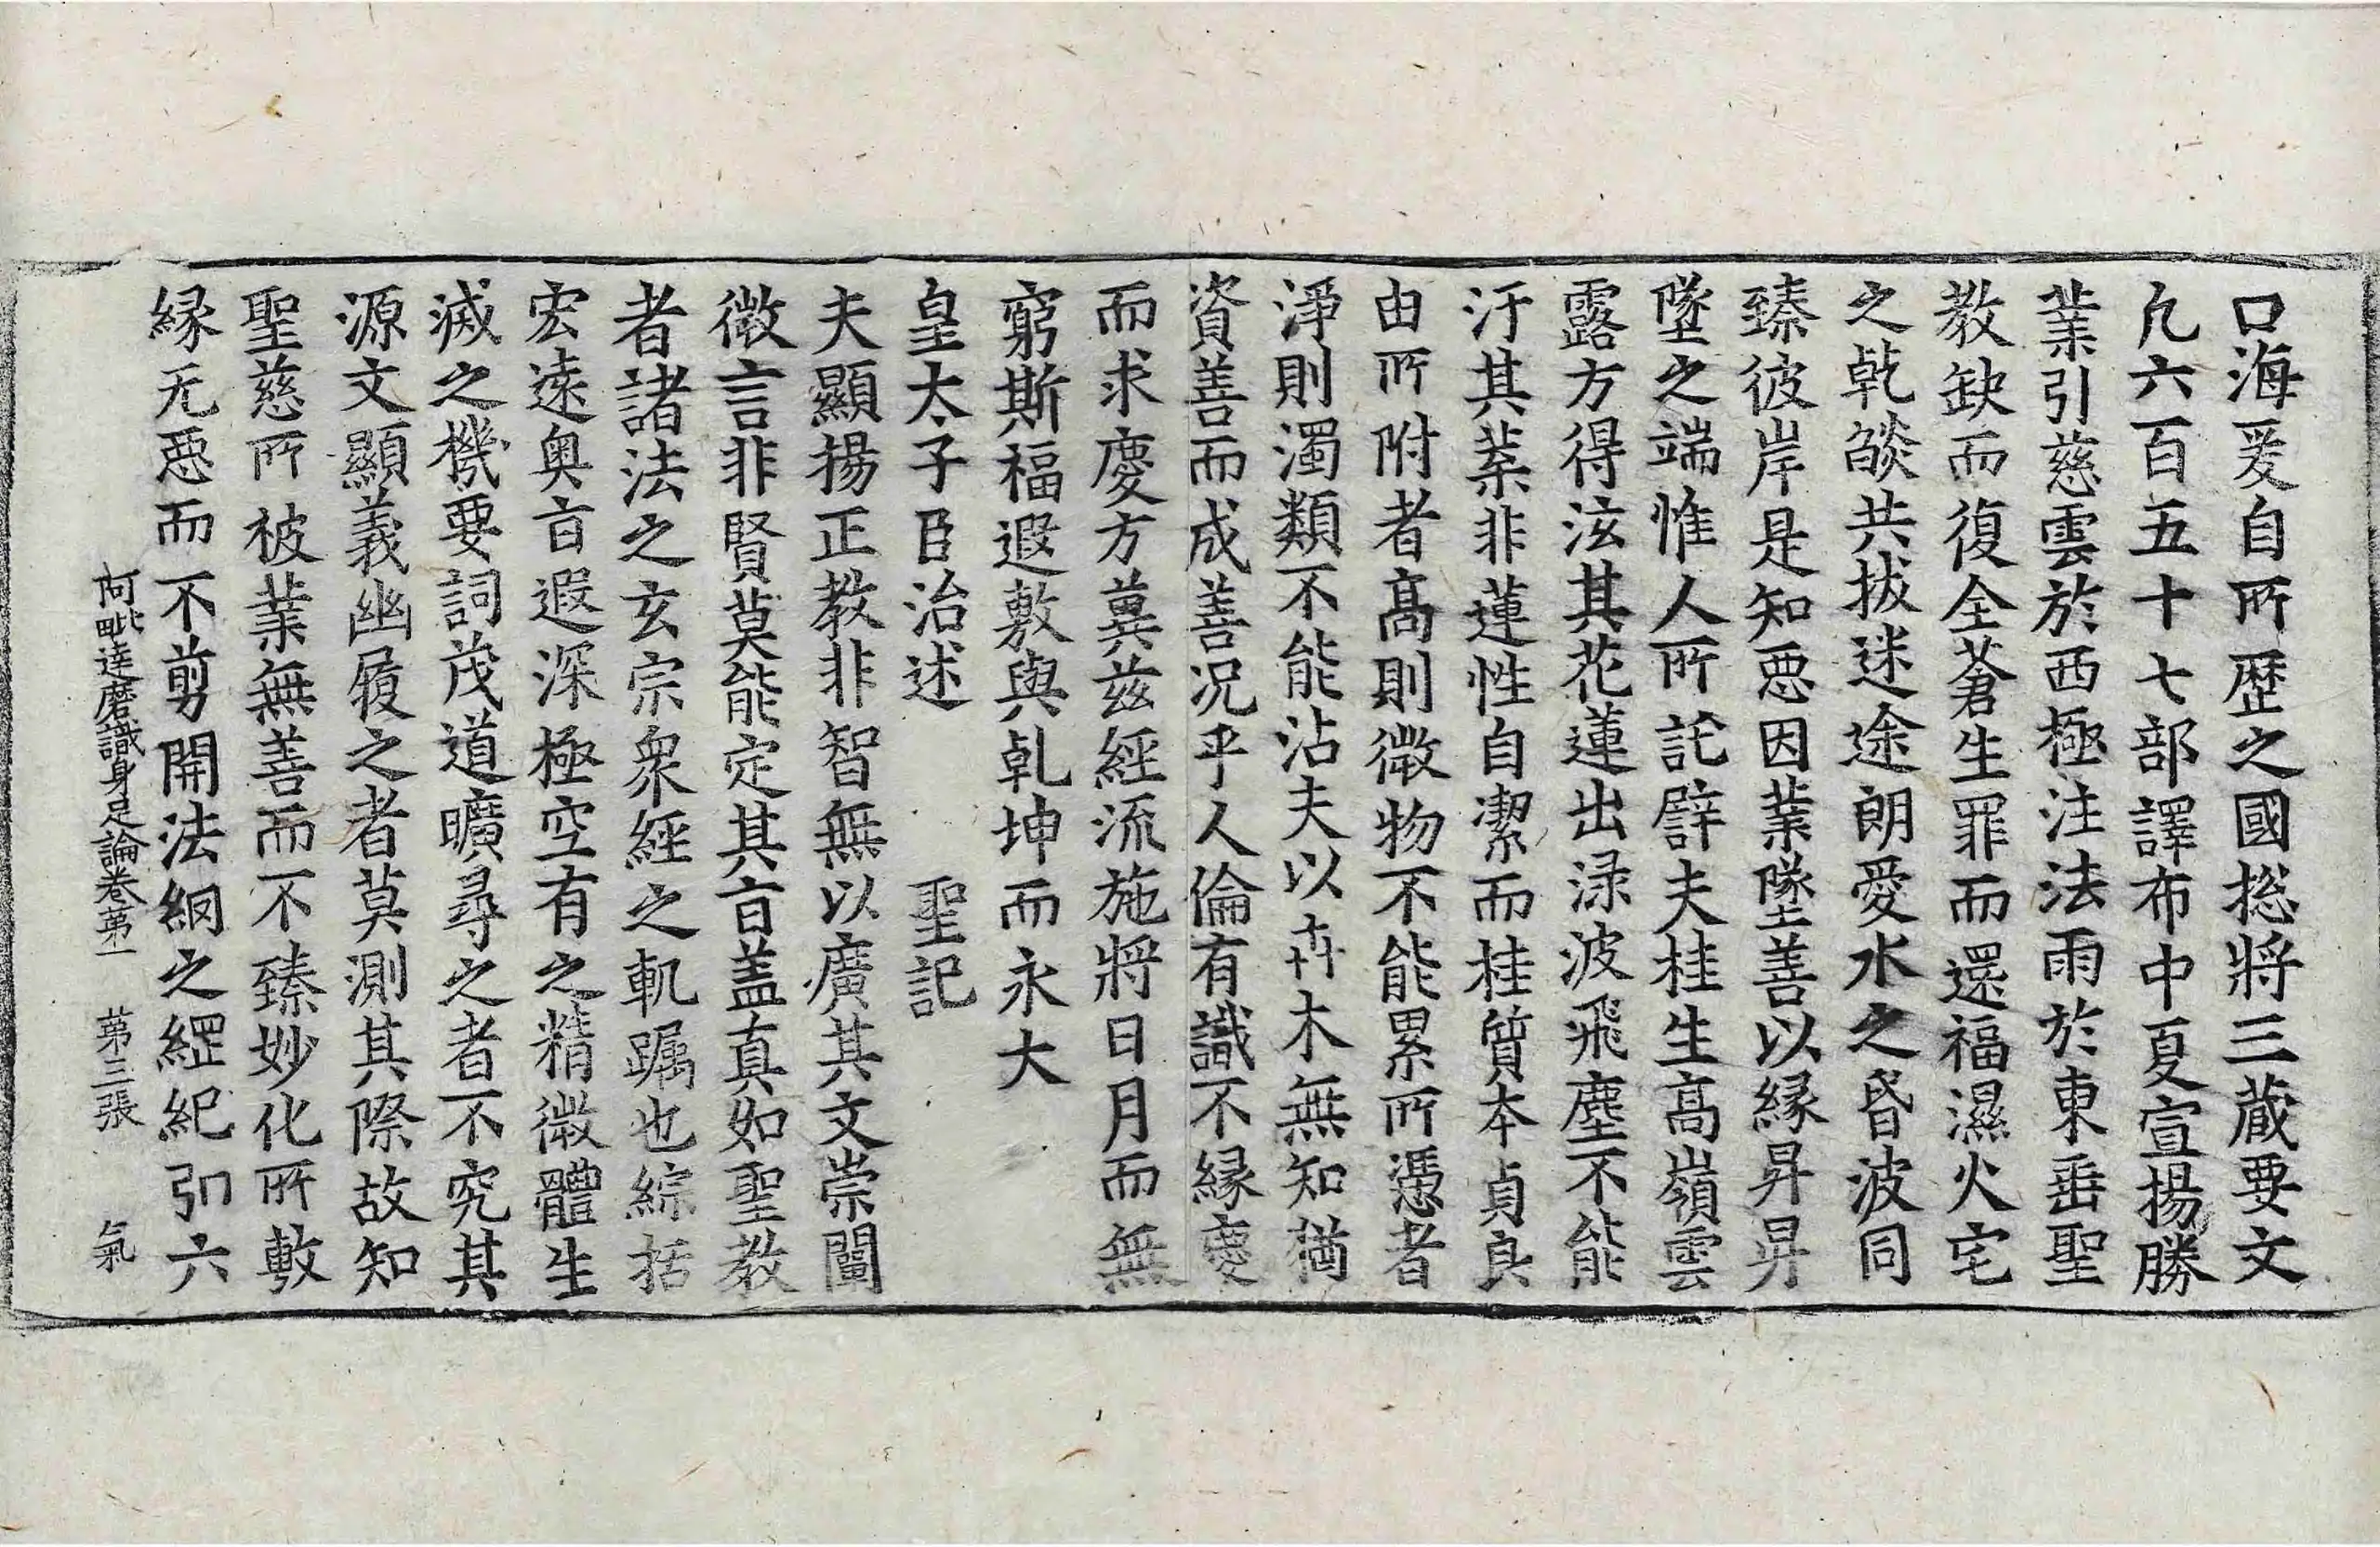 口海爰自所歷之國揔將三蔵要文
凢六百五十七部譯布中夏宣揚勝
業引慈雲於西極注法雨於東垂聖
教缺而復全蒼生罪而還福濕火宅
之乾燄共拔迷途朗愛水之昏波同
臻彼岸是知惡因業墜善以縁昇昇
墜之端惟人所託譬夫桂生高嶺雲
露方得泫其花蓮出渌波飛塵不能
汙其葉非蓮性自潔而桂質本貞良
由所附者高則微物不能累所憑者
淨則濁類不能沾夫以卉木無知猶
資善而成善况乎人倫有識不縁慶
而求慶方冀兹經流施將日月而無
窮斯福遐敷與乹坤而永大
皇太子臣治述　聖記
夫顯揚正教非智無以廣其文崇闡
微言非賢莫能定其㫖盖真如聖教
者諸法之玄宗衆經之軌躅也綜括
宏逺奥㫖遐深極空有之精微體生
滅之機要詞茂道曠尋之者不究其
源文顯義幽履之者莫測其際故知
聖慈所被業無善而不臻妙化所敷
縁无惡而不剪開法網之綱紀弘六
阿毗達磨識身足論卷第一　第三張　氣